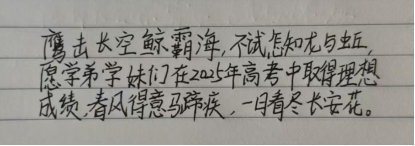 鹰击长空鲸霸海,不试怎知龙与虫丘,
愿学弟学妹们在2025年高考中取得理想
成绩,春风得意马蹄疾,一日看尽长安花。